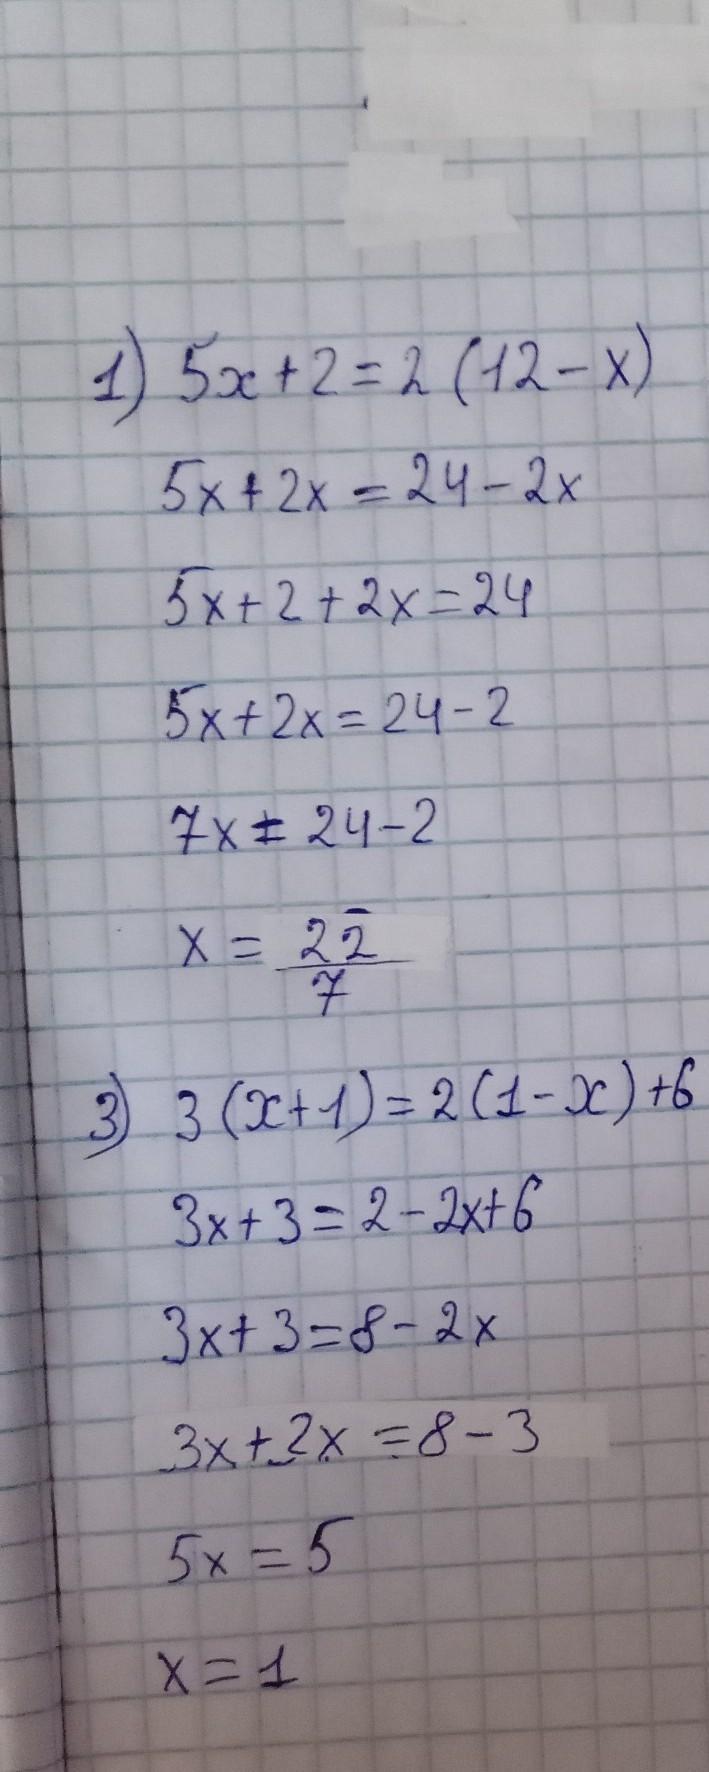 1) 5x+2=2(12-x)
5x+2x=24-2x
5x+2+2x=24
5x+2x=24-2
7x=24-2
x=22/7
3) 3(x+1)=2(1-x)+6
3x+3=2-2x+6
3x+3=8-2x
3x+2x=8-3
5x=5
x=1